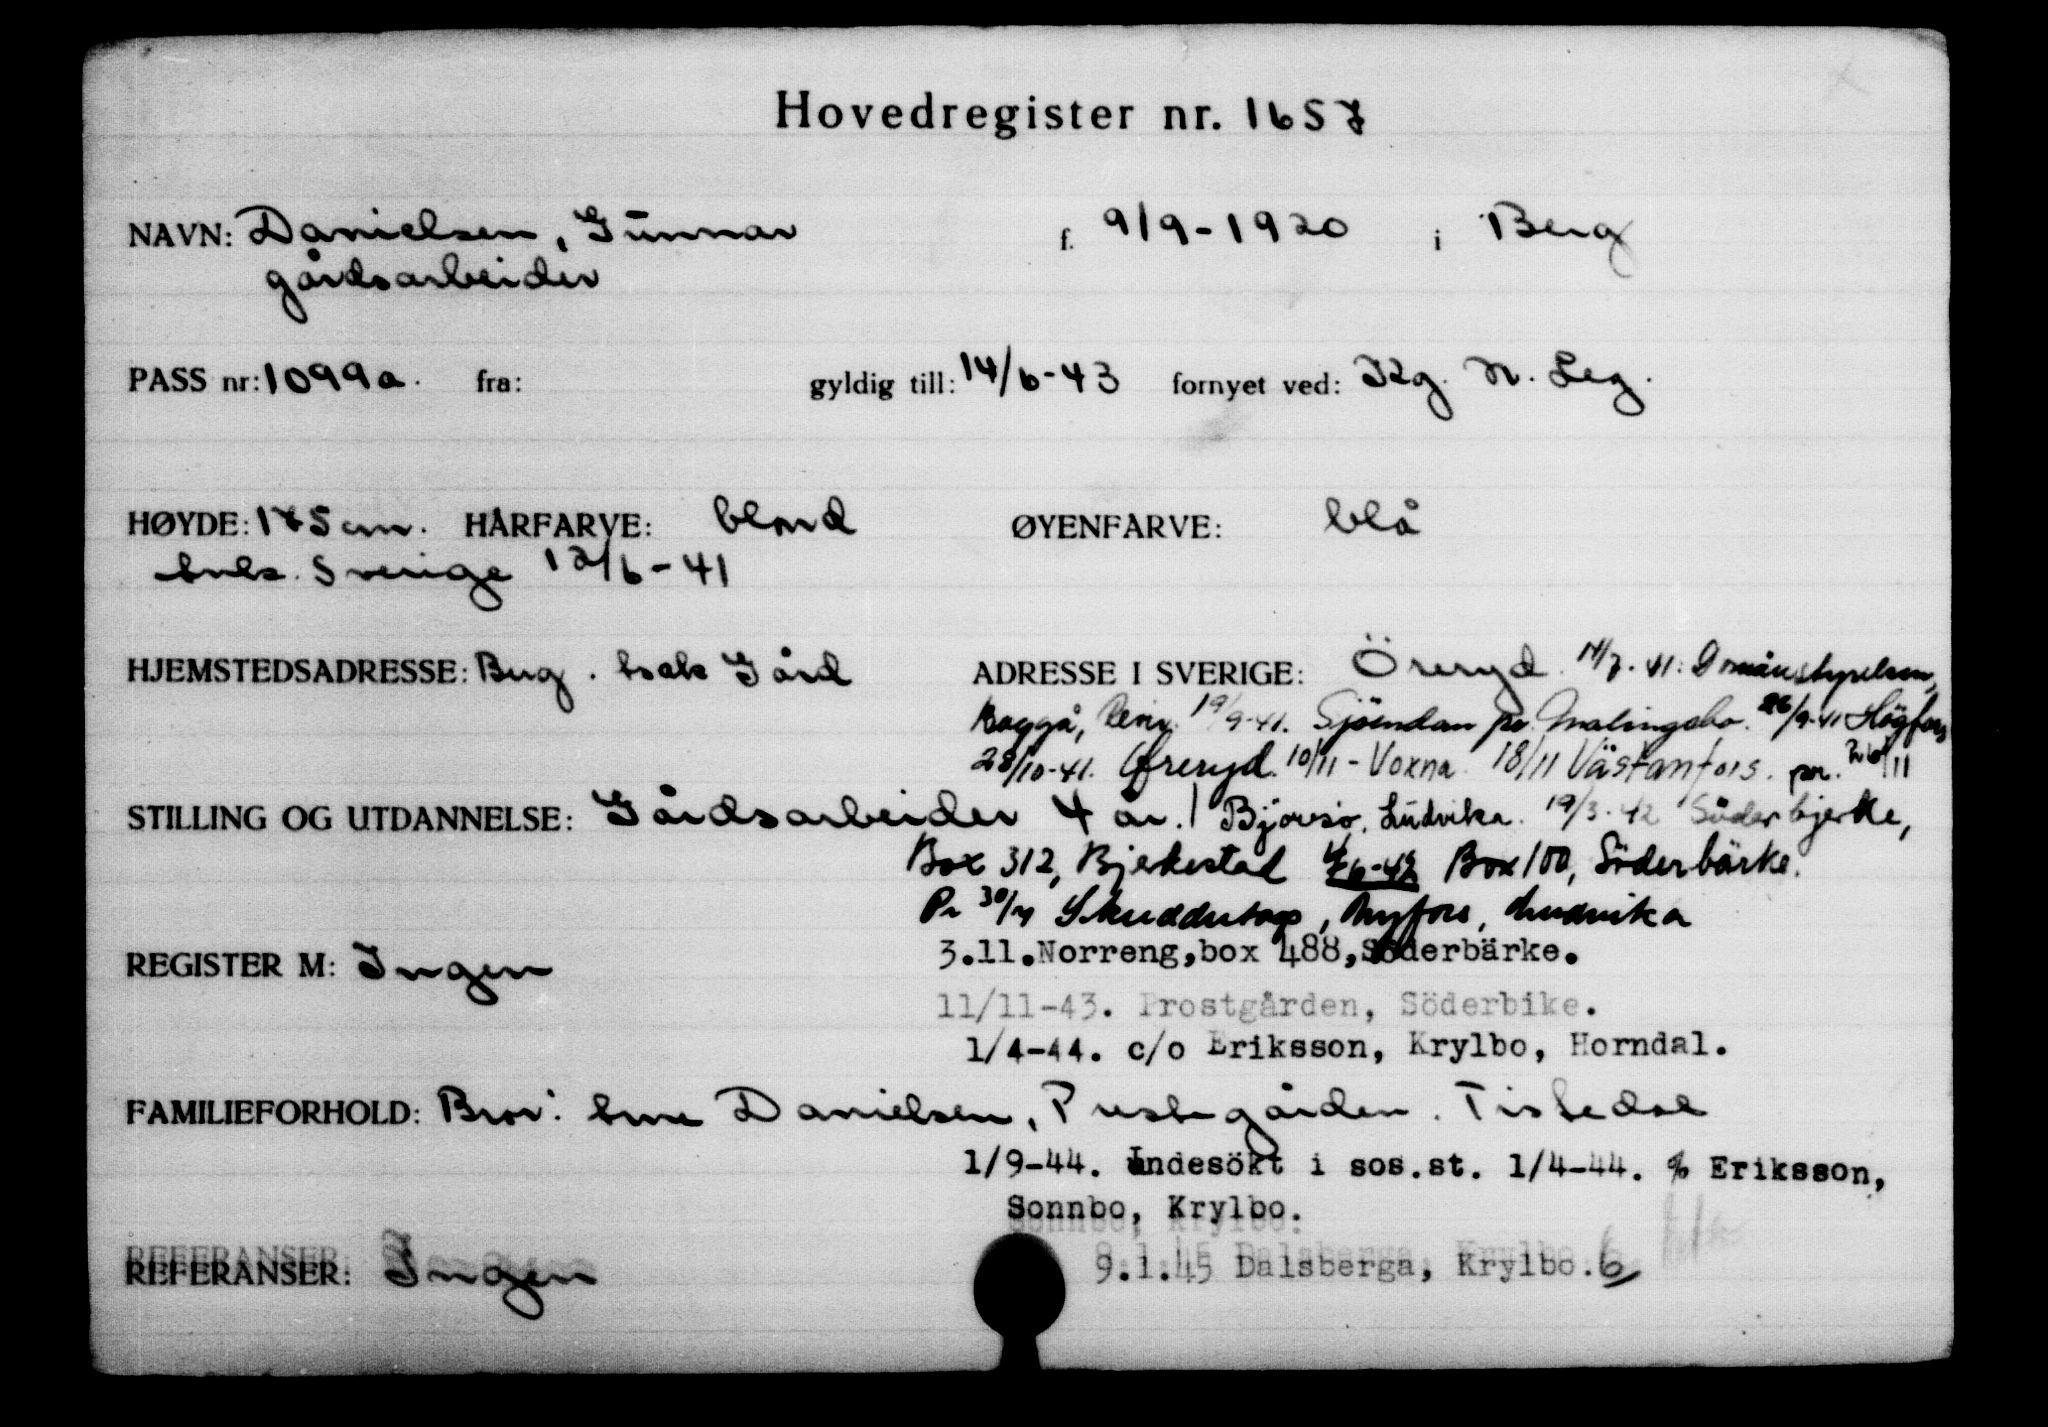 Hovedregister nr. 1657
NAVN: Danielsen, Gunnar f. 9/9-1920 i Berg
gårdsarbeider
PASS nr: 1099a. fra: gyldig till: 14/6-43 fornyet ved: Kg. N. Leg.
HØYDE: 175 cm. HÅRFARVE: blond ØYENFARVE: blå
Sverige 12/6-41
HJEMSTEDSADRESSE: Berg. Gård ADRESSE I SVERIGE: Öreryd. 14/7-41: Domänstyrelsen,
Baggå, 19/9-41. Sjöendan pr. Malingsbo. 26/9-41 Högfors
28/10-41. Øreryd. 10/11 - Voxna 18/11 Västanfors. pr. 26/11
STILLING OG UTDANNELSE: Gårdsarbeider 4 år. / Björsjö, Ludvika. 19/3-42 Söderbjerke,
Box 312, Bjerkestad Box 100, Söderbärke.
Pr 30/7 Nyfors, Ludvika
REGISTER M: Ingen 3.11.Norreng,box 488,Söderbärke.
11/11-43. Prostgården, Söderbike.
1/4-44. c/o Eriksson, Krylbo, Horndal.
FAMILIEFORHOLD: Bror: Danielsen, Prestegården. Tistedal
1/9-44. Undesökt i sos.st. 1/4-44. % Eriksson,
Sonnbo, Krylbo.
REFERANSER: Ingen 9.1.45 Dalsberga, Krylbo. 6